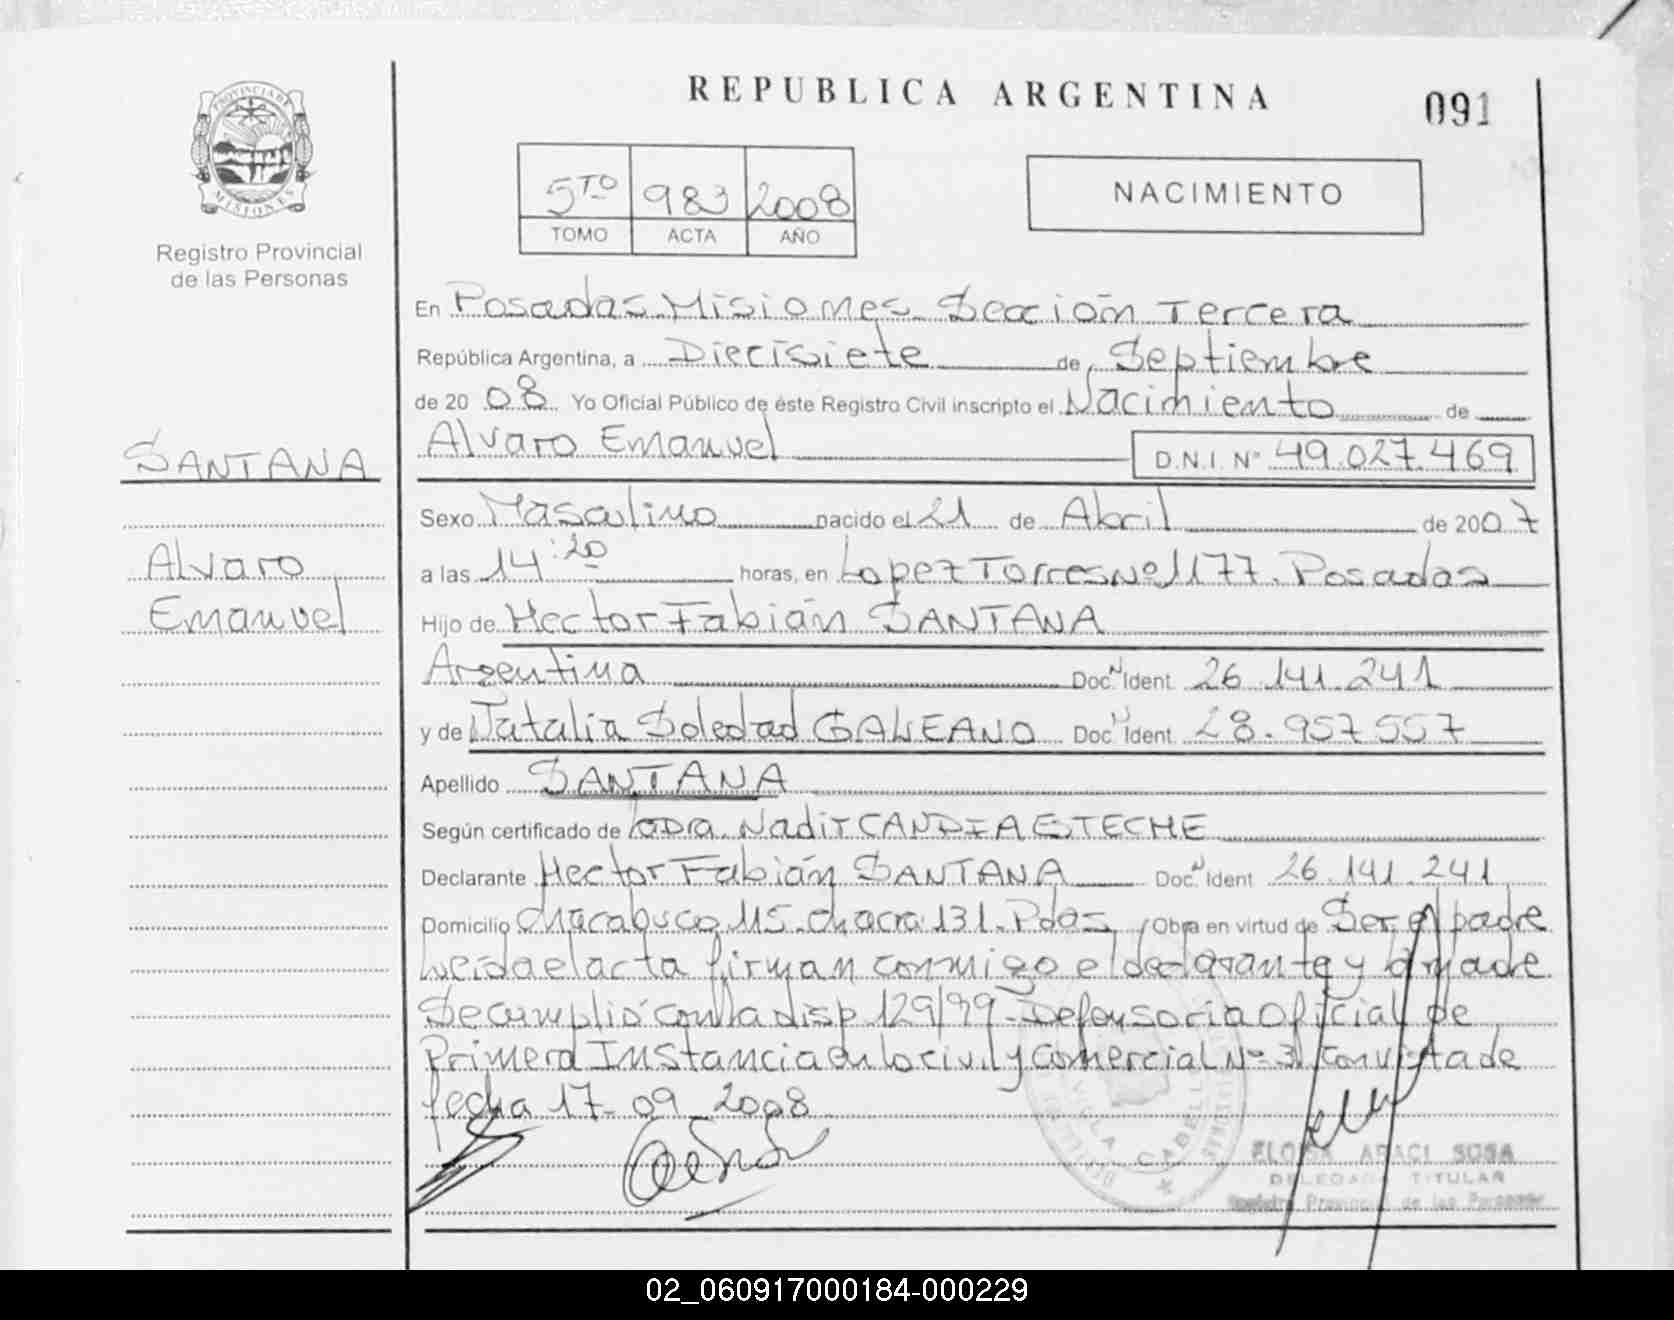 REPUBLICA ARGENTINA
091
PROVINCIA DE
MISIONES
Registro Provincial
de las Personas
5TO 983 2008
TOMO ACTA AÑO
NACIMIENTO
En Posadas Misiones Sección Tercera
República Argentina, a Diecisiete de Septiembre
de 2008 Yo Oficial Público de éste Registro Civil inscripto el Nacimiento de
Alvaro Emanuel D.N.I. N° 49.027.469
SANTANA
Alvaro
Emanuel
Sexo Masculino nacido el 21 de Abril de 2007
a las 14:20 horas, en Lopez Torres Nº 1177. Posadas
Hijo de Hector Fabián SANTANA
Argentina Doc. Ident. 26.141.241
y de Natalia Soledad GALEANO Doc. Ident. 28.957557
Apellido SANTANA
Según certificado de Dra. Nadir CANDIA ESTECHE
Declarante Hector Fabián SANTANA Doc. Ident 26.141.241
Domicilio chacabuco 115. chacra 131. Pdas Obra en virtud de Ser el padre
Leída el acta firman conmigo el declarante y la madre
Se cumplió con la disp 129/99-Defensoria Oficial de
Primera Instancia en lo civil y comercial Nº 3 con vista de
fecha 17-09-2008
VILLA CABELLO
ELOISA ARACI SOSA
DELEGADA TITULAR
Registro Provincial de las Personas
02_060917000184-000229